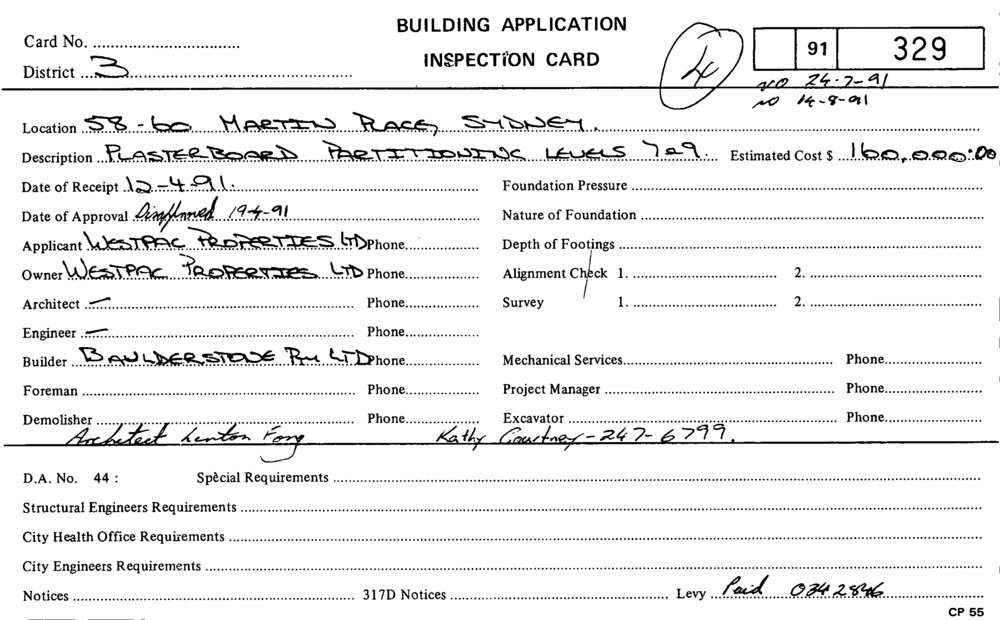 BUILDING APPLICATION
INSPECTION CARD
Card No.
District 3
4
91 329
NO 24-7-91
NO 14-8-91
Location 58-60 MARTIN PLACE, SYDNEY.
Description PLASTERBOARD PARTITIONING LEVELS 7&9. Estimated Cost $ 160,000.00
Date of Receipt 12-4-91. Foundation Pressure
Date of Approval 19-4-91 Nature of Foundation
Applicant WESTPAC PROPERTIES LTD Phone Depth of Footings
Owner WESTPAC PROPERTIES LTD Phone Alignment Check 1. 2.
Architect — Phone Survey 1. 2.
Engineer — Phone
Builder BAULDERSTONE P/L LTD Phone Mechanical Services Phone
Foreman Phone Project Manager Phone
Demolisher Phone Excavator Phone
Architect Lenton Fong Kathy Courtney - 247-6799.
D.A. No. 44: Special Requirements
Structural Engineers Requirements
City Health Office Requirements
City Engineers Requirements
Notices 317D Notices Levy Paid 0342846
CP 55